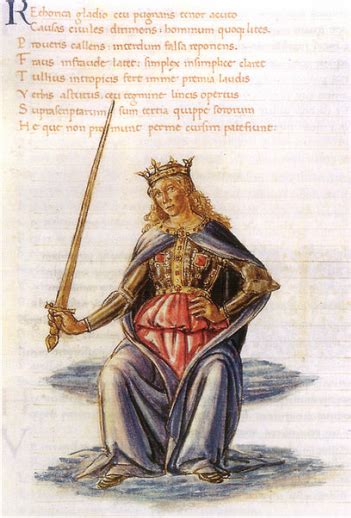 Rethorica gladio ceu pugnans tenor acuto
Causas ciuiles dirimens: hominum quoq; lites.
Prouerti callens: interdum falsa reponens.
Fraus instaude latet: simplex insimplice claret
Tullius intropicis fert imme premia laudis
Verbis astutus, ceu tegmine lincis opertus
Suprascriptarum sum tertia quippe sororum
He que non promunt perme cursim patefiunt.